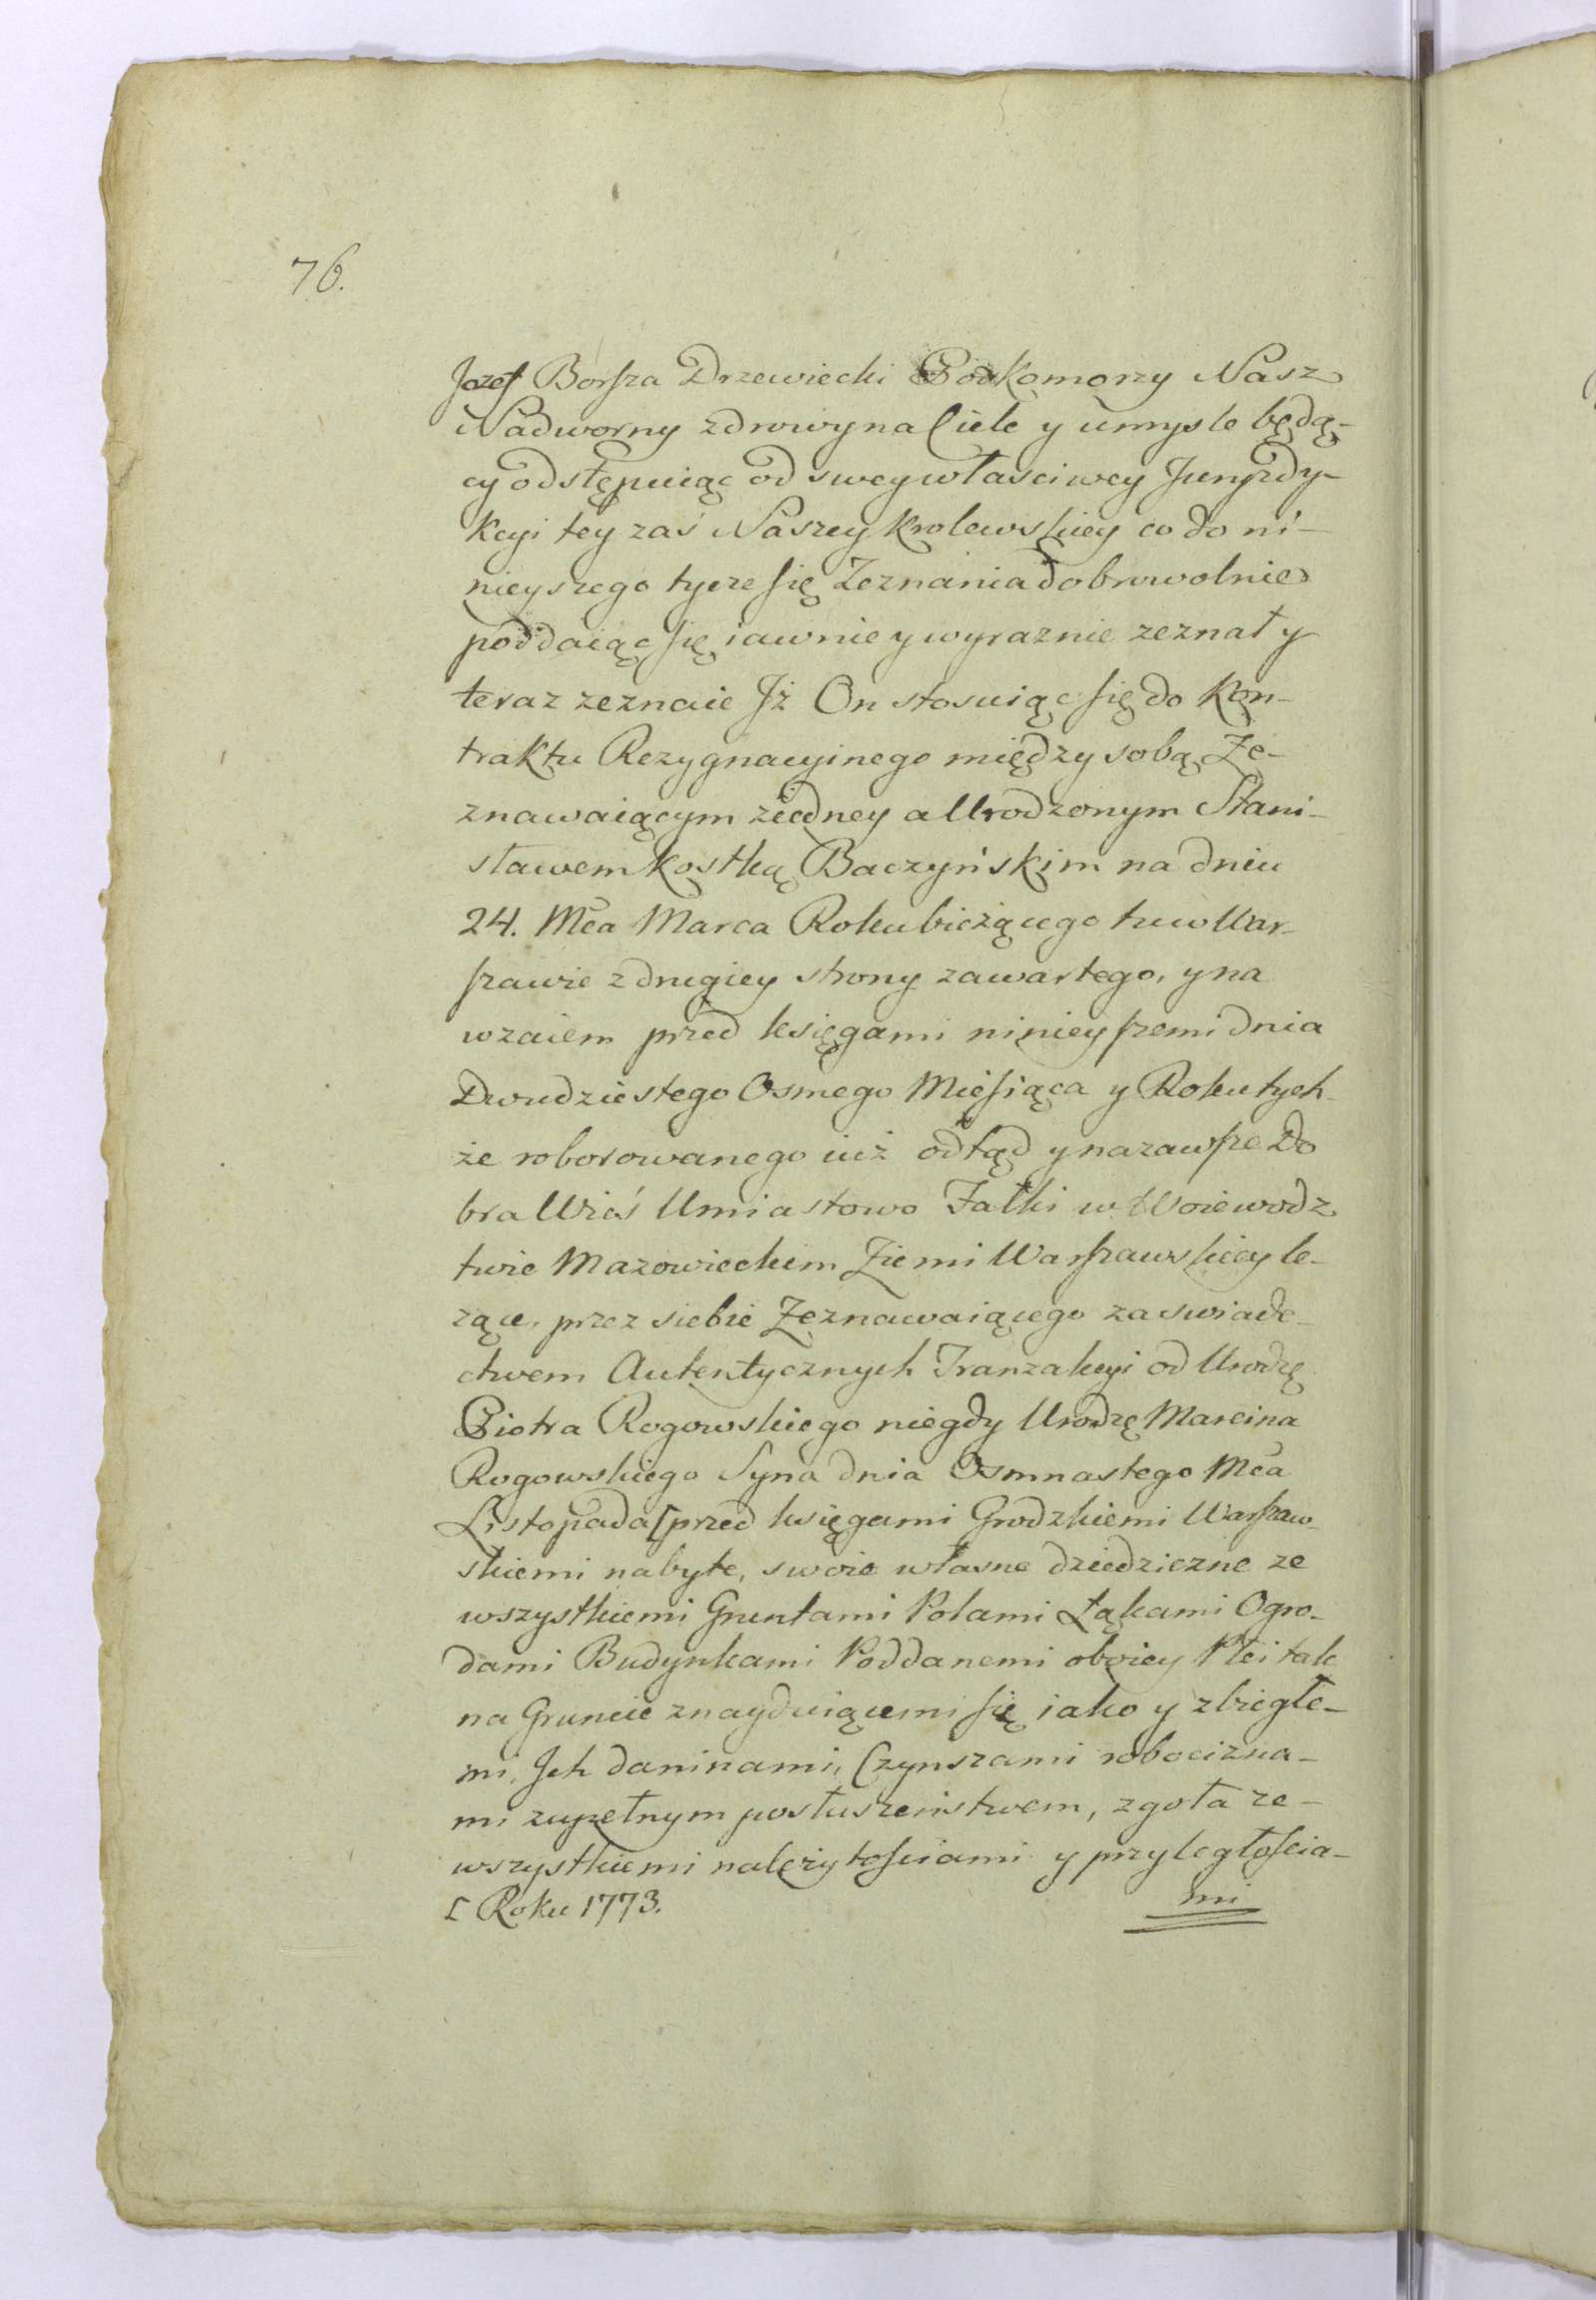 76.
Jozef Borsza Drzewiecki Podkomorzy Nasz
Nadworny zdrowy na Ciele y umysle będą-
cy odstępuiąc od swey własciwey Juryzdy-
kcyi tey zaś Naszey Krolewskiey co do ni-
nieyszego tycze się Zeznania dobrowolnie
poddaiąc się iawnie y wyraznie zeznał y
teraz zeznaie Jż On stosuiąc się do Kon-
traktu Rezygnacyinego między sobą Ze-
znawaiącym ziedney a Urodzonym Stani-
sławem Kostką Baczyńskim na dniu
24. Mca Marca Roku bieżącego tu w War-
szawie z drugiey strony zawartego, y na
wzaiem przed księgami ninieyszemi dnia
Dwudziestego Osmego Miesiąca y Roku tych-
że roborowanego iuż odtąd y nazawsze Do
bra Wieś Umiastowo Fałki w Woiewodz
twie Mazowieckim Ziemi Warszawskiey le-
żące, przez siebie Zeznawaiącego za swiade-
ctwem Autentycznych Tranzakcyi od Urodzę
Piotra Rogowskiego niegdy Urodzę Marcina
Rogowskiego Syna dnia Osmnastego Mca
Listopada [ przed księgami Grodzkiemi Warszaw-
skiemi nabyte, swoie własne dziedziczne ze
wszystkiemi Gruntami Polami Łąkami Ogro-
dami Budynkami Poddanemi oboiey Płci tak
na Gruncie znayduiącemi się iako y zbiegłe-
mi, Jch daninami, Czynszami robocizna-
mi zupełnym posłuszeństwem, zgoła ze-
wszystkiemi należytościami y przyległościa-
[ Roku 1773.
mi